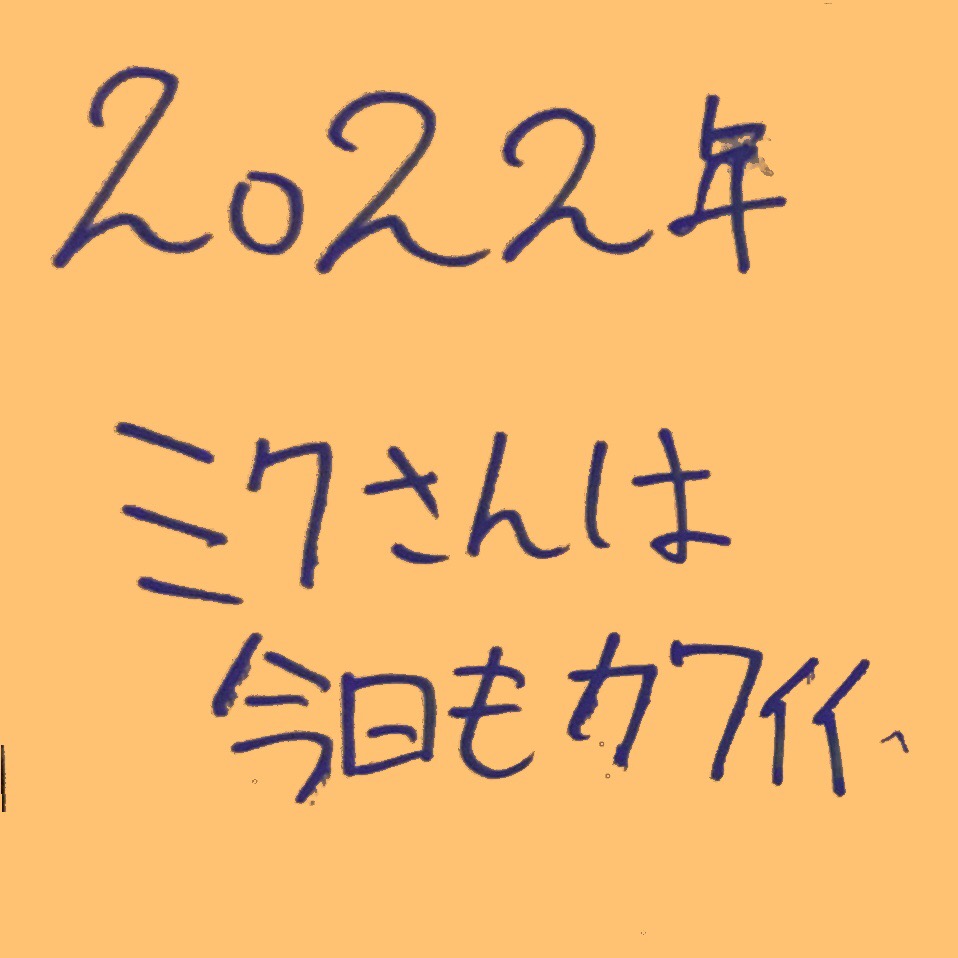 2022年
ミクさんは
今日もカワイイ